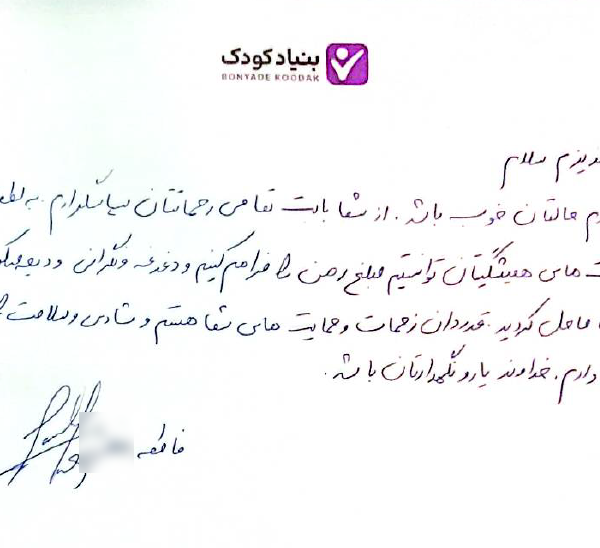 بنیاد کودک
BONYADE KOODAK
عزیزم سلام
حالتان خوب باشد. از شما بابت تمامی زحماتتان سپاسگزارم. به لطف
های همیشگیتان توانستیم مبلغ رهن را فراهم کنیم و دغدغه و نگرانی
حل کردید. قدردان زحمات و حمایت های شما هستم و شادی و سلامت
دارم. خداوند یار و نگهدارتان باشد.
فاطمه